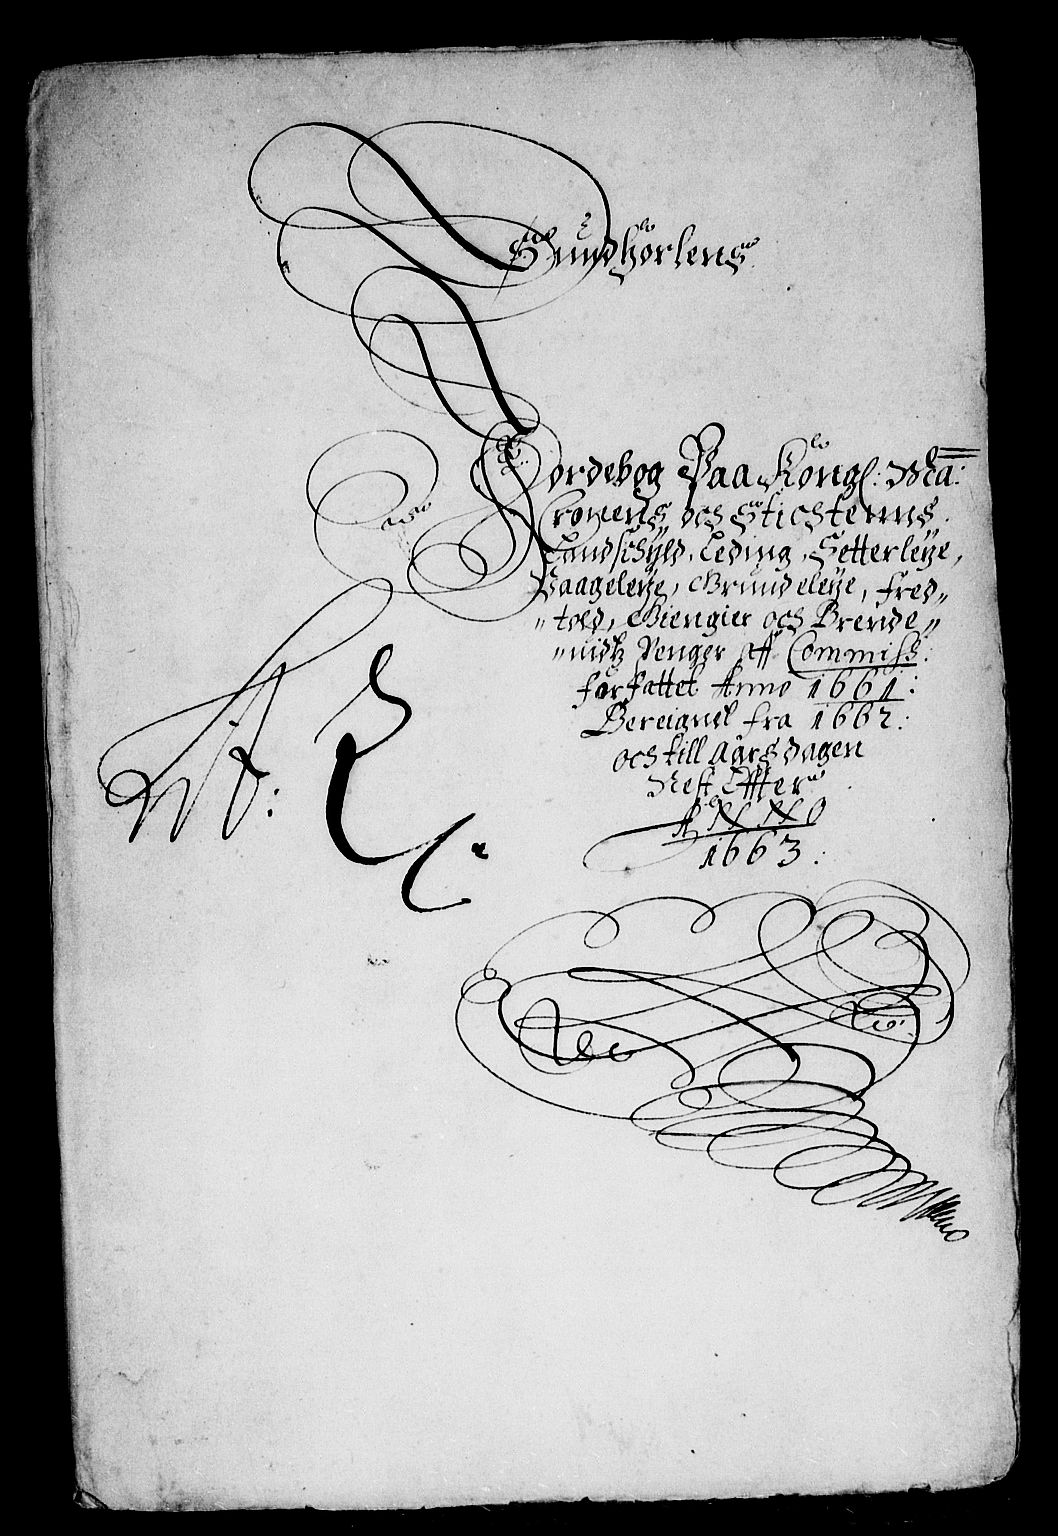 Sundhorlens
Jordebog Paa Kongl: Ma:
Cronens och Stichtens
Landschyld, Leding, Setterleye,
Vaageleye, Grundeleye, fred„
„told, Giengier och Brende„
„vidtz Penger aff Commiss:
forfattet Anno 1661:
Bereignet fra 1662:
och till Aars dagen
Nest Effter
ANNO
1663:
N: